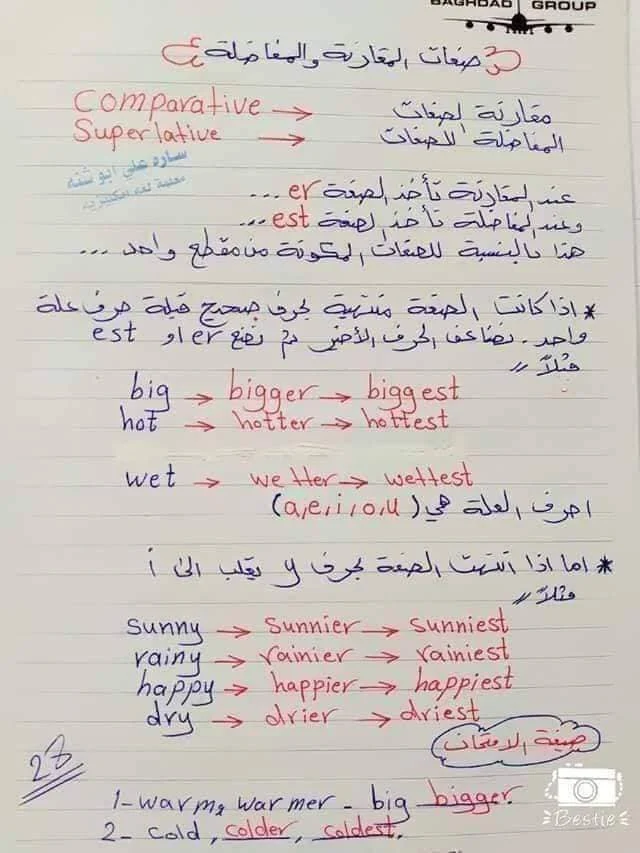 BAGHDAD GROUP
صفات المقارنة والمفاضلة
Comparative → مقارنة لصفات
Superlative → المفاضلة للصفات
ساره علي ابو شنه
عند المقارنة تأخذ الصفة er ...
وعند المفاضلة تأخذ الصفة est ...
هذا بالنسبة للصفات المكونة من مقطع واحد ...
* اذا كانت الصفة منتهية بحرف صحيح قبلة حرف علة
واحد. نضاعف الحرف الأخير ثم نضع er او est
مثلاً //
big → bigger → biggest
hot → hotter → hottest
wet → wetter → wettest
احرف العلة هي (a,e,i,o,u)
* اما اذا انتهت الصفة بحرف y يقلب الى i
مثلاً //
sunny → sunnier → sunniest
rainy → rainier → rainiest
happy → happier → happiest
dry → drier → driest
صيغة الامتحان
28
1- warm, warmer - big bigger.
2- cold, colder, coldest.
Bestie